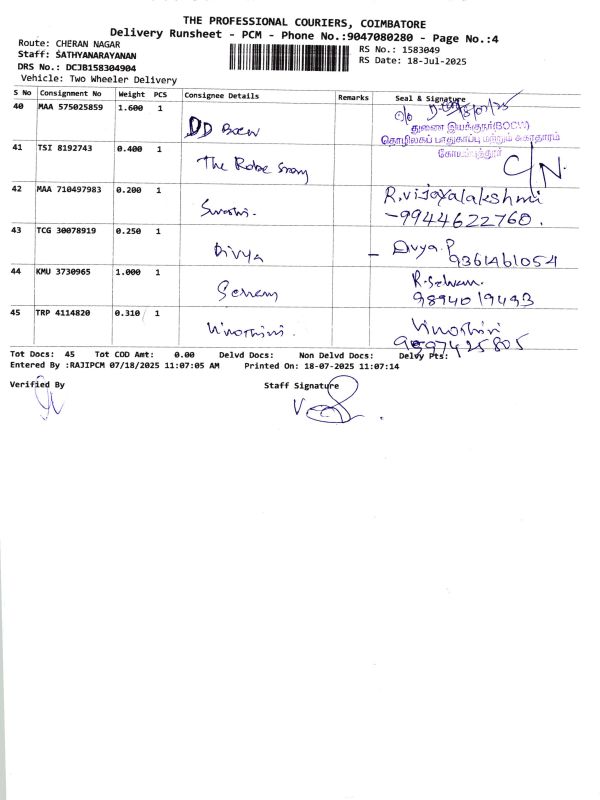 THE PROFESSIONAL COURIERS, COIMBATORE
Delivery Runsheet - PCM - Phone No.:9047080280 - Page No.:4
Route: CHERAN NAGAR
RS No.: 1583049
Staff: SATHYANARAYANAN
RS Date: 18-Jul-2025
DRS No.: DCJB158304904
Vehicle: Two Wheeler Delivery
S No Consignment No Weight PCS Consignee Details Remarks Seal & Signature
40 MAA 575025859 1.600 1 DD 18/07/25
துணை இயக்குநர்(BOCW)
தொழிலகப் பாதுகாப்பு மற்றும் சுகாதாரம்
கோயம்புத்தூர்
41 TSI 8192743 0.400 1 The Robe Story
42 MAA 710497983 0.200 1 R.vijayalakshmi
-9944622760.
43 TCG 30078919 0.250 1 Divya - Divya.P
9361461054
44 KMU 3730965 1.000 1 R.Selvam.
9894019493
45 TRP 4114820 0.310 1 Vinothini. Vinothini
Tot Docs: 45 Tot COD Amt: 0.00 Delvd Docs: Non Delvd Docs: Delvy Pts:
Entered By :RAJIPCM 07/18/2025 11:07:05 AM Printed On: 18-07-2025 11:07:14
Verified By Staff Signature